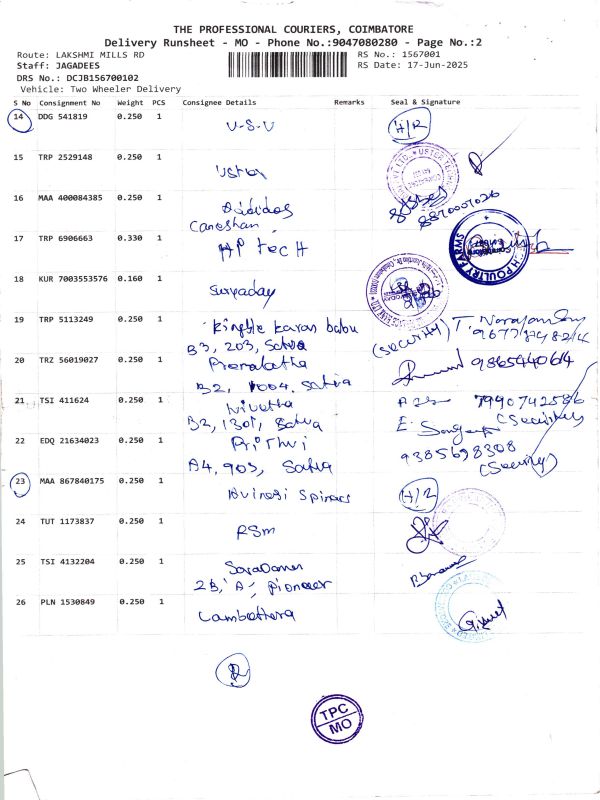 THE PROFESSIONAL COURIERS, COIMBATORE
Delivery Runsheet - MO - Phone No.:9047080280 - Page No.:2
Route: LAKSHMI MILLS RD RS No.: 1567001
Staff: JAGADEES RS Date: 17-Jun-2025
DRS No.: DCJB156700102
Vehicle: Two Wheeler Delivery
S No Consignment No Weight PCS Consignee Details Remarks Seal & Signature
14 DDG 541819 0.250 1 U-S-V H/R
15 TRP 2529148 0.250 1 Uster
16 MAA 400084385 0.250 1 Adidas
Caneshan
17 TRP 6906663 0.330 1 HP tecH
18 KUR 7003553576 0.160 1 Suryaday
19 TRP 5113249 0.250 1 Kingtle Karan babu
B3, 203, Satva (Security)
20 TRZ 56019027 0.250 1 Premalatha 9865440614
B2, 1004, Satva
21 TSI 411624 0.250 1 Nivetha 7990742586
B2, 1301, Satva (Security)
22 EDQ 21634023 0.250 1 Prithvi 9385698308
A4, 903, Satva (Security)
23 MAA 867840175 0.250 1 H/R
24 TUT 1173837 0.250 1 RSM
25 TSI 4132204 0.250 1
2B, 'A', Pioneer
26 PLN 1530849 0.250 1 Cambottera
TPC
MO